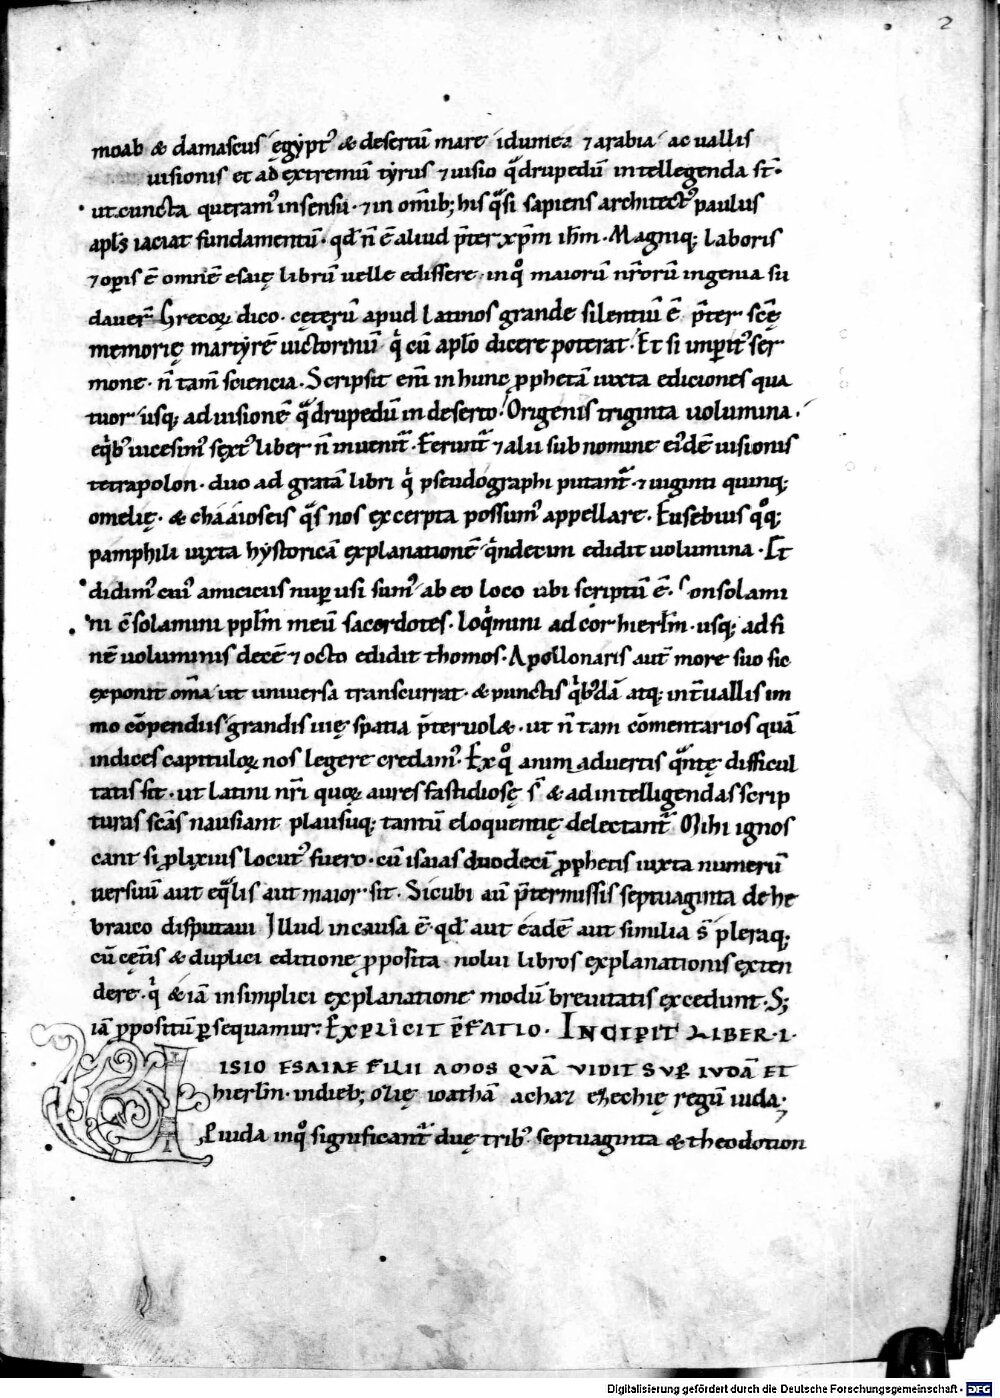 2
moab & damascus egẏpt᾽ & desertū mare idumea ⁊ arabia ac uallis
uisionis et ad extremū tẏrus ⁊ uisio qᵃdrupedū intellegenda st̄·
ut cuncta queram᾽ in sensu· ⁊ in om̄ib; his qᵃsi sapiens architect᾽ paulus
apl̄s iaciat fundamentū· qd̄ n̄ ē aliud p̄ter xp̄m ih̄m. Magniq; laboris
⁊ opis ē omnē esaię librū uelle edissere· in qͦ maiorū nr̄orū ingenia su
dauer̄· Grecoꝝ dico· cęterū apud latinos grande silentiū ē p̄ter scę̄
memorię martẏrē uictorinū qⁱ cū aplō dicere poterat· Et si imꝑit᾽ ser
mone· n̄ tam̄ sciencia· Scripsit em̄ in hunc ꝓphetā iuxta ediciones qua
tuor usq; ad uisionē qᵃdrupedū in deserto· Origenis triginta uolumina·
eqⁱb᾽ uicesim᾽ sext᾽ liber n̄ inuenit᷑· Ferunt᷑ ⁊ alii sub nomine ei᾽dē uisionis
tetrapolon· duo ad gratā libri qⁱ pseudographi putant᷑· ⁊ uiginti quinq;
omelię· & chaaioseis qᵃs nos excerpta possum᾽ appellare· Eusebius qͦq;
pamphili iuxta hẏstoricā explanationē qⁱndecim edidit uolumina· Et
didim᾽ cui᾽ amiciciis nuꝑ usi sum᾽ ab eo loco ubi scriptū ē· Consolami
ni c̄solamini ppl̄m meū sacerdotes· loqⁱmini ad cor hierl̄m· usq; ad fi
nē uoluminis decē ⁊ octo edidit thomos· Apollonaris aut̄ more suo sic
exponit om̄a ut uniuersa transcurrat· & punctis qⁱb᾽dā atq; int̄uallis im
mo cōpendiis grandis uię spatia p̄teruol&· ut n̄ tam cōmentarios quā
indices capituloꝝ nos legere credam᾽· Ex qͦ animaduertis qᵃntę difficul
tatis sit· ut latini nr̄i quoꝝ aures fastidiosę s̄ & ad intelligendas scrip
turas scās nausiant plausuq; tantū eloquentię delectant᷑ Mihi ignos
cant si ꝓlixius locut᾽ fuero· cū isaias duodeci ꝓphetis iuxta numerū
uersuū aut eqᵃlis aut maior sit· Sicubi aū p̄termissis septuaginta de he
braico disputaui Illud in causa ē· qd̄ aut eadē aut similia s̄ pleraq;
cū cęt̄is & duplici editione ꝓposita nolui libros explanationis exten
dere· qⁱ & iā in simplici explanatione modū breuitatis excedunt· S;
iā ꝓpositū ꝑsequamur· EXPLICIT P̄FATIO· INCIPIT LIBER·I·
VISIO ESAIAE FILII AMOS QUĀ VIDIT SVP̄ IVDĀ ET
hierl̄m· in dieb; ozię ioathā achaz ezechię regū iuda·
P̲ iuda inqͦ significant᷑ duę trib᾽ septuaginta & theodotion
Digitalisierung gefördert durch die Deutsche Forschungsgemeinschaft - DFG